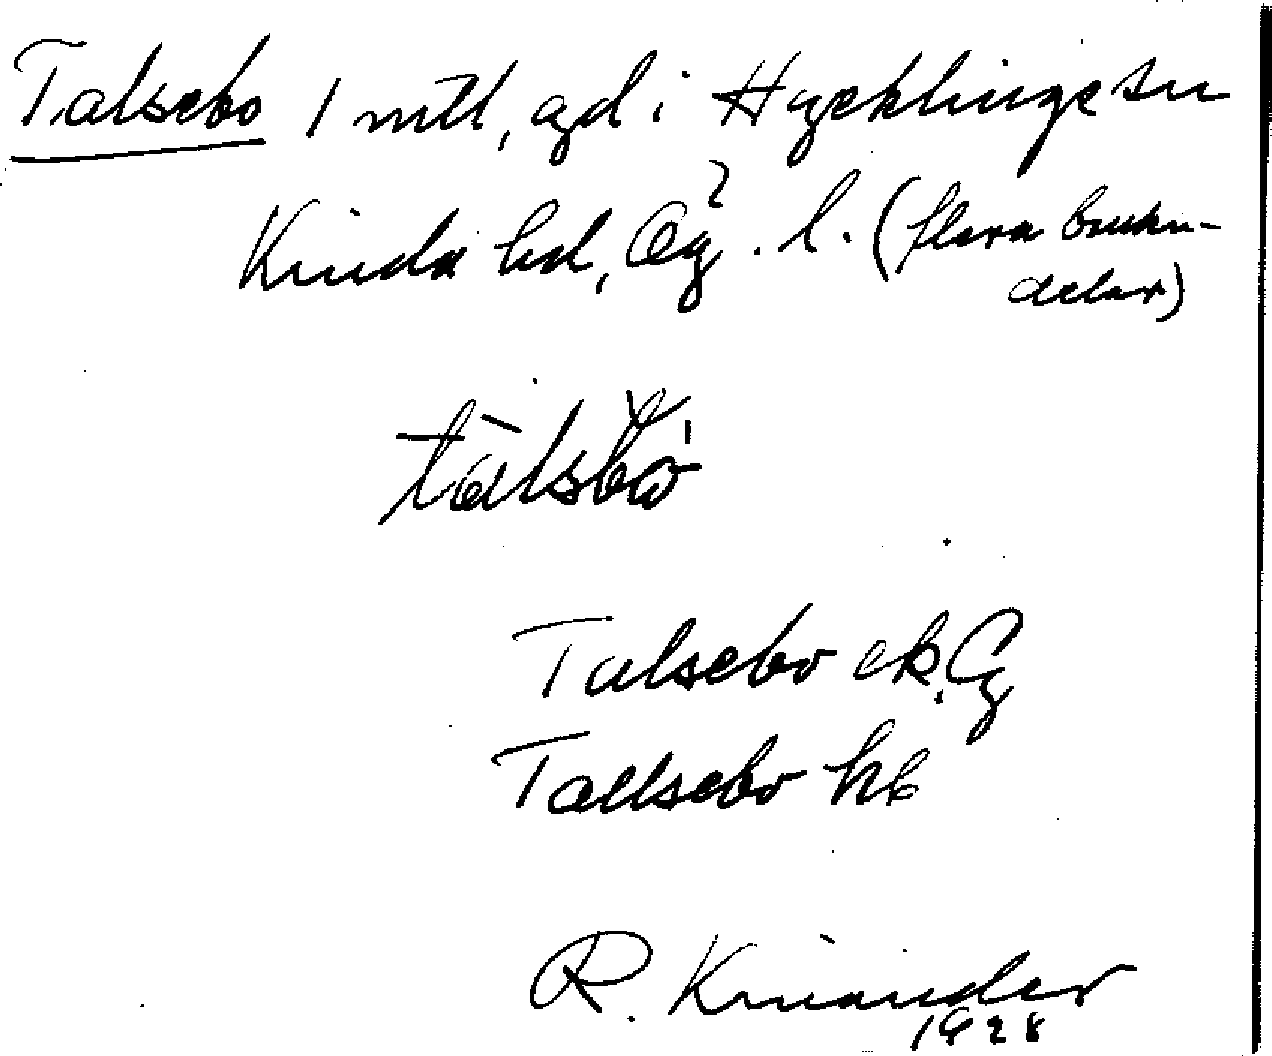 Talsebo 1 mtl, gd i Hycklinge sn
Kinda hd, Ög. l. (flera bruknings-
delar)
Talsebo ek. Ög
Tallsebo hb
R. Kinander
1928